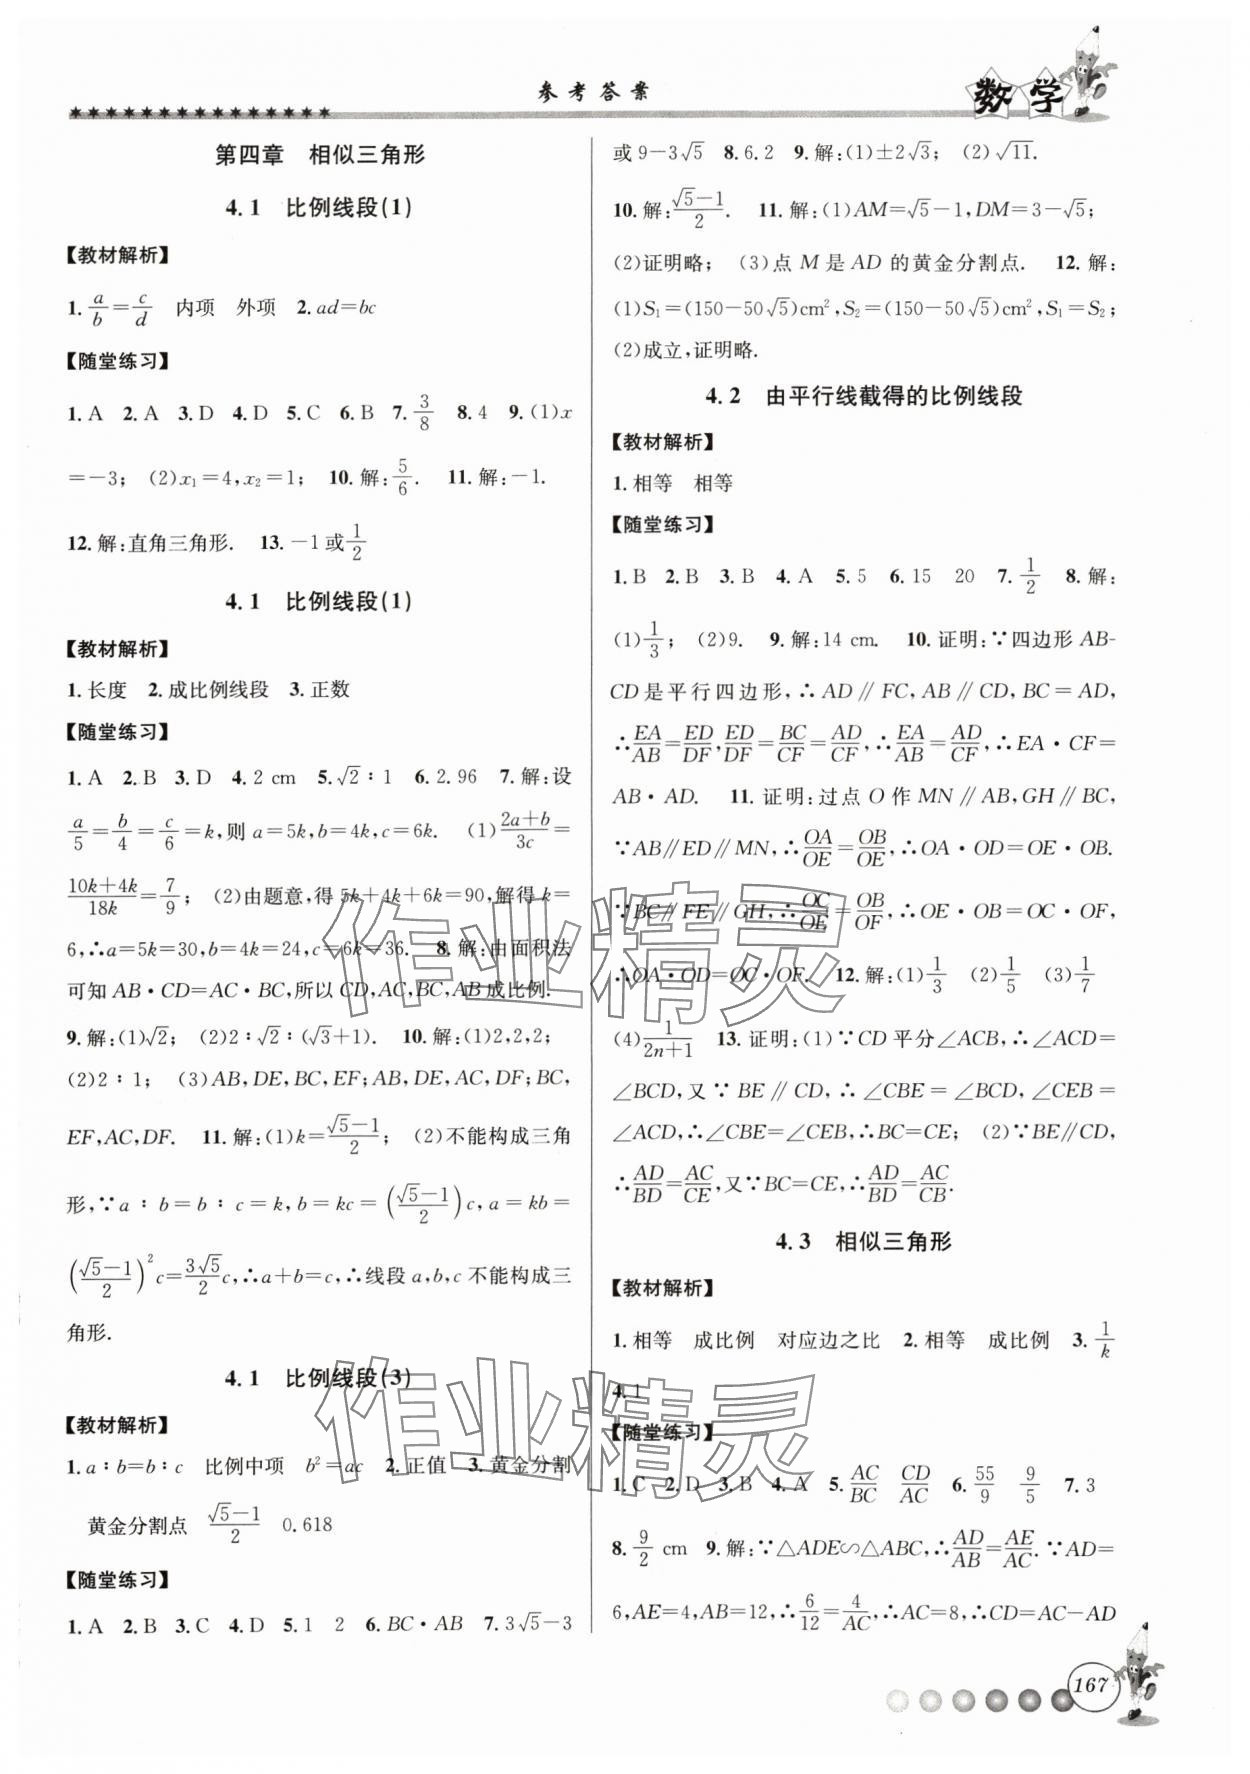 参考答案
数学
第四章 相似三角形
4.1 比例线段(1)
【教材解析】
1. a/b=c/d 内项 外项 2. ad=bc
【随堂练习】
1. A 2. A 3. D 4. D 5. C 6. B 7. 3/8 8. 4 9. (1)x
=-3; (2)x₁=4,x₂=1; 10. 解:5/6. 11. 解:-1.
12. 解:直角三角形. 13. -1或1/2
4.1 比例线段(1)
【教材解析】
1. 长度 2. 成比例线段 3. 正数
【随堂练习】
1. A 2. B 3. D 4. 2 cm 5. √2∶1 6. 2.96 7. 解:设
a/5=b/4=c/6=k,则a=5k,b=4k,c=6k. (1)(2a+b)/3c=
(10k+4k)/18k=7/9; (2)由题意,得5k+4k+6k=90,解得k=
6,∴a=5k=30,b=4k=24,c=6k=36. 8. 解:由面积法
可知AB·CD=AC·BC,所以CD,AC,BC,AB成比例.
9. 解:(1)√2; (2)2∶√2∶(√3+1). 10. 解:(1)2,2,2;
(2)2∶1; (3)AB,DE,BC,EF;AB,DE,AC,DF;BC,
EF,AC,DF. 11. 解:(1)k=(√5-1)/2; (2)不能构成三角
形,∵a∶b=b∶c=k,b=kc=((√5-1)/2)c,a=kb=
((√5-1)/2)²c=(3√5)/2c,∴a+b=c,∴线段a,b,c不能构成三
角形.
4.1 比例线段(3)
【教材解析】
1. a∶b=b∶c 比例中项 b²=ac 2. 正值 3. 黄金分割
黄金分割点 (√5-1)/2 0.618
【随堂练习】
1. A 2. B 3. C 4. D 5. 1 2 6. BC·AB 7. 3√5-3
或9-3√5 8. 6.2 9. 解:(1)±2√3; (2)√11.
10. 解:(√5-1)/2. 11. 解:(1)AM=√5-1,DM=3-√5;
(2)证明略; (3)点M是AD的黄金分割点. 12. 解:
(1)S₁=(150-50√5)cm²,S₂=(150-50√5)cm²,S₁=S₂;
(2)成立,证明略.
4.2 由平行线截得的比例线段
【教材解析】
1. 相等 相等
【随堂练习】
1. B 2. B 3. B 4. A 5. 5 6. 15 20 7. 1/2 8. 解:
(1)1/3; (2)9. 9. 解:14 cm. 10. 证明:∵四边形AB-
CD是平行四边形,∴AD∥FC,AB∥CD,BC=AD,
∴EA/AB=ED/DF,ED/DF=BC/CF=AD/CF,∴EA/AB=AD/CF,∴EA·CF=
AB·AD. 11. 证明:过点O作MN∥AB,GH∥BC,
∵AB∥ED∥MN,∴OA/OE=OB/OE,∴OA·OD=OE·OB.
∵BC∥FE∥GH,∴OC/OE=OB/OF,∴OE·OB=OC·OF,
∴OA·OD=OC·OF. 12. 解:(1)1/3 (2)1/5 (3)1/7
(4)1/(2n+1) 13. 证明:(1)∵CD平分∠ACB,∴∠ACD=
∠BCD,又∵BE∥CD,∴∠CBE=∠BCD,∠CEB=
∠ACD,∴∠CBE=∠CEB,∴BC=CE; (2)∵BE∥CD,
∴AD/BD=AC/CE,又∵BC=CE,∴AD/BD=AC/CB.
4.3 相似三角形
【教材解析】
1. 相等 成比例 对应边之比 2. 相等 成比例 3. 1/k
4. 1
【随堂练习】
1. C 2. D 3. B 4. A 5. AC/BC CD/AC 6. 55/9 9/5 7. 3
8. 9/2 cm 9. 解:∵△ADE∽△ABC,∴AD/AB=AE/AC. ∵AD=
6,AE=4,AB=12,∴6/12=4/AC,∴AC=8,∴CD=AC-AD
167
作业精灵
作业精灵